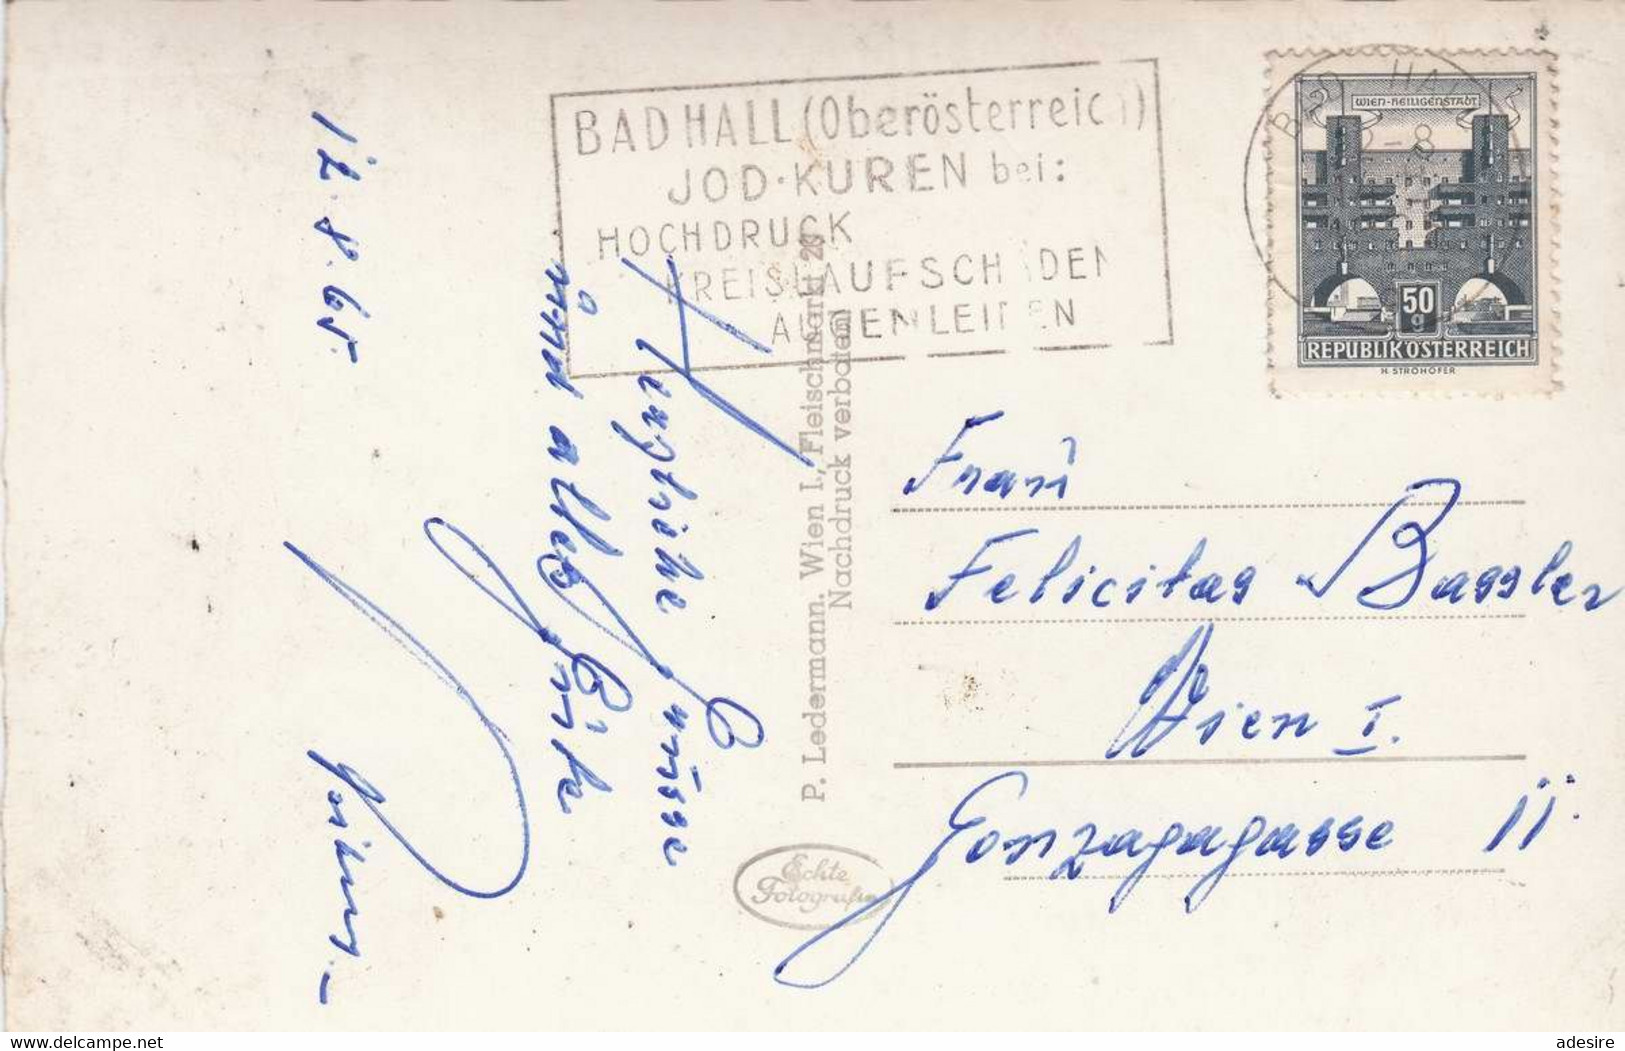 BAD HALL (Oberösterreich)
JOD-KUREN bei:
HOCHDRUCK
KREISLAUFSCHÄDEN
AUGENLEIDEN
BAD HALL
WIEN-HEILIGENSTADT
50
g
REPUBLIK ÖSTERREICH
H. STROHOFER
12.8.65.
Herzliche Grüsse
und alles Gute
P. Ledermann. Wien I., Fleischmarkt 20
Nachdruck verboten
Echte
Fotografie
Frau
Felicitas Bassler
Wien I.
Gonzagagasse 11.
delcampe.net
adesire